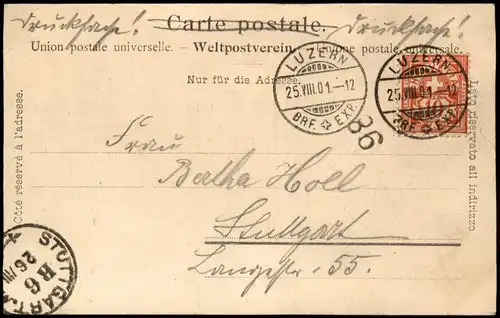 Drucksache! Carte postale. Drucksache!
Union postale universelle. – Weltpostverein. – Unione postale universale.
Nur für die Adresse.
Côté réservé à l'adresse.
Lato riservato all indirizzo
LUZERN
25.VIII.01.–12
BRF. EXP.
LUZERN
25.VIII.01.–12
BRF. EXP.
86
Frau
Bertha Holl
Stuttgart
Langestr. 55.
STUTTGART
B6
26/VIII